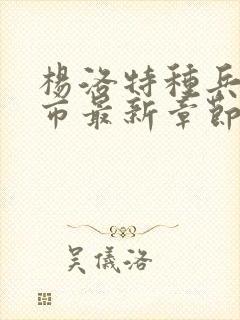 楊洛特種兵
市最新章節
吳儀洛